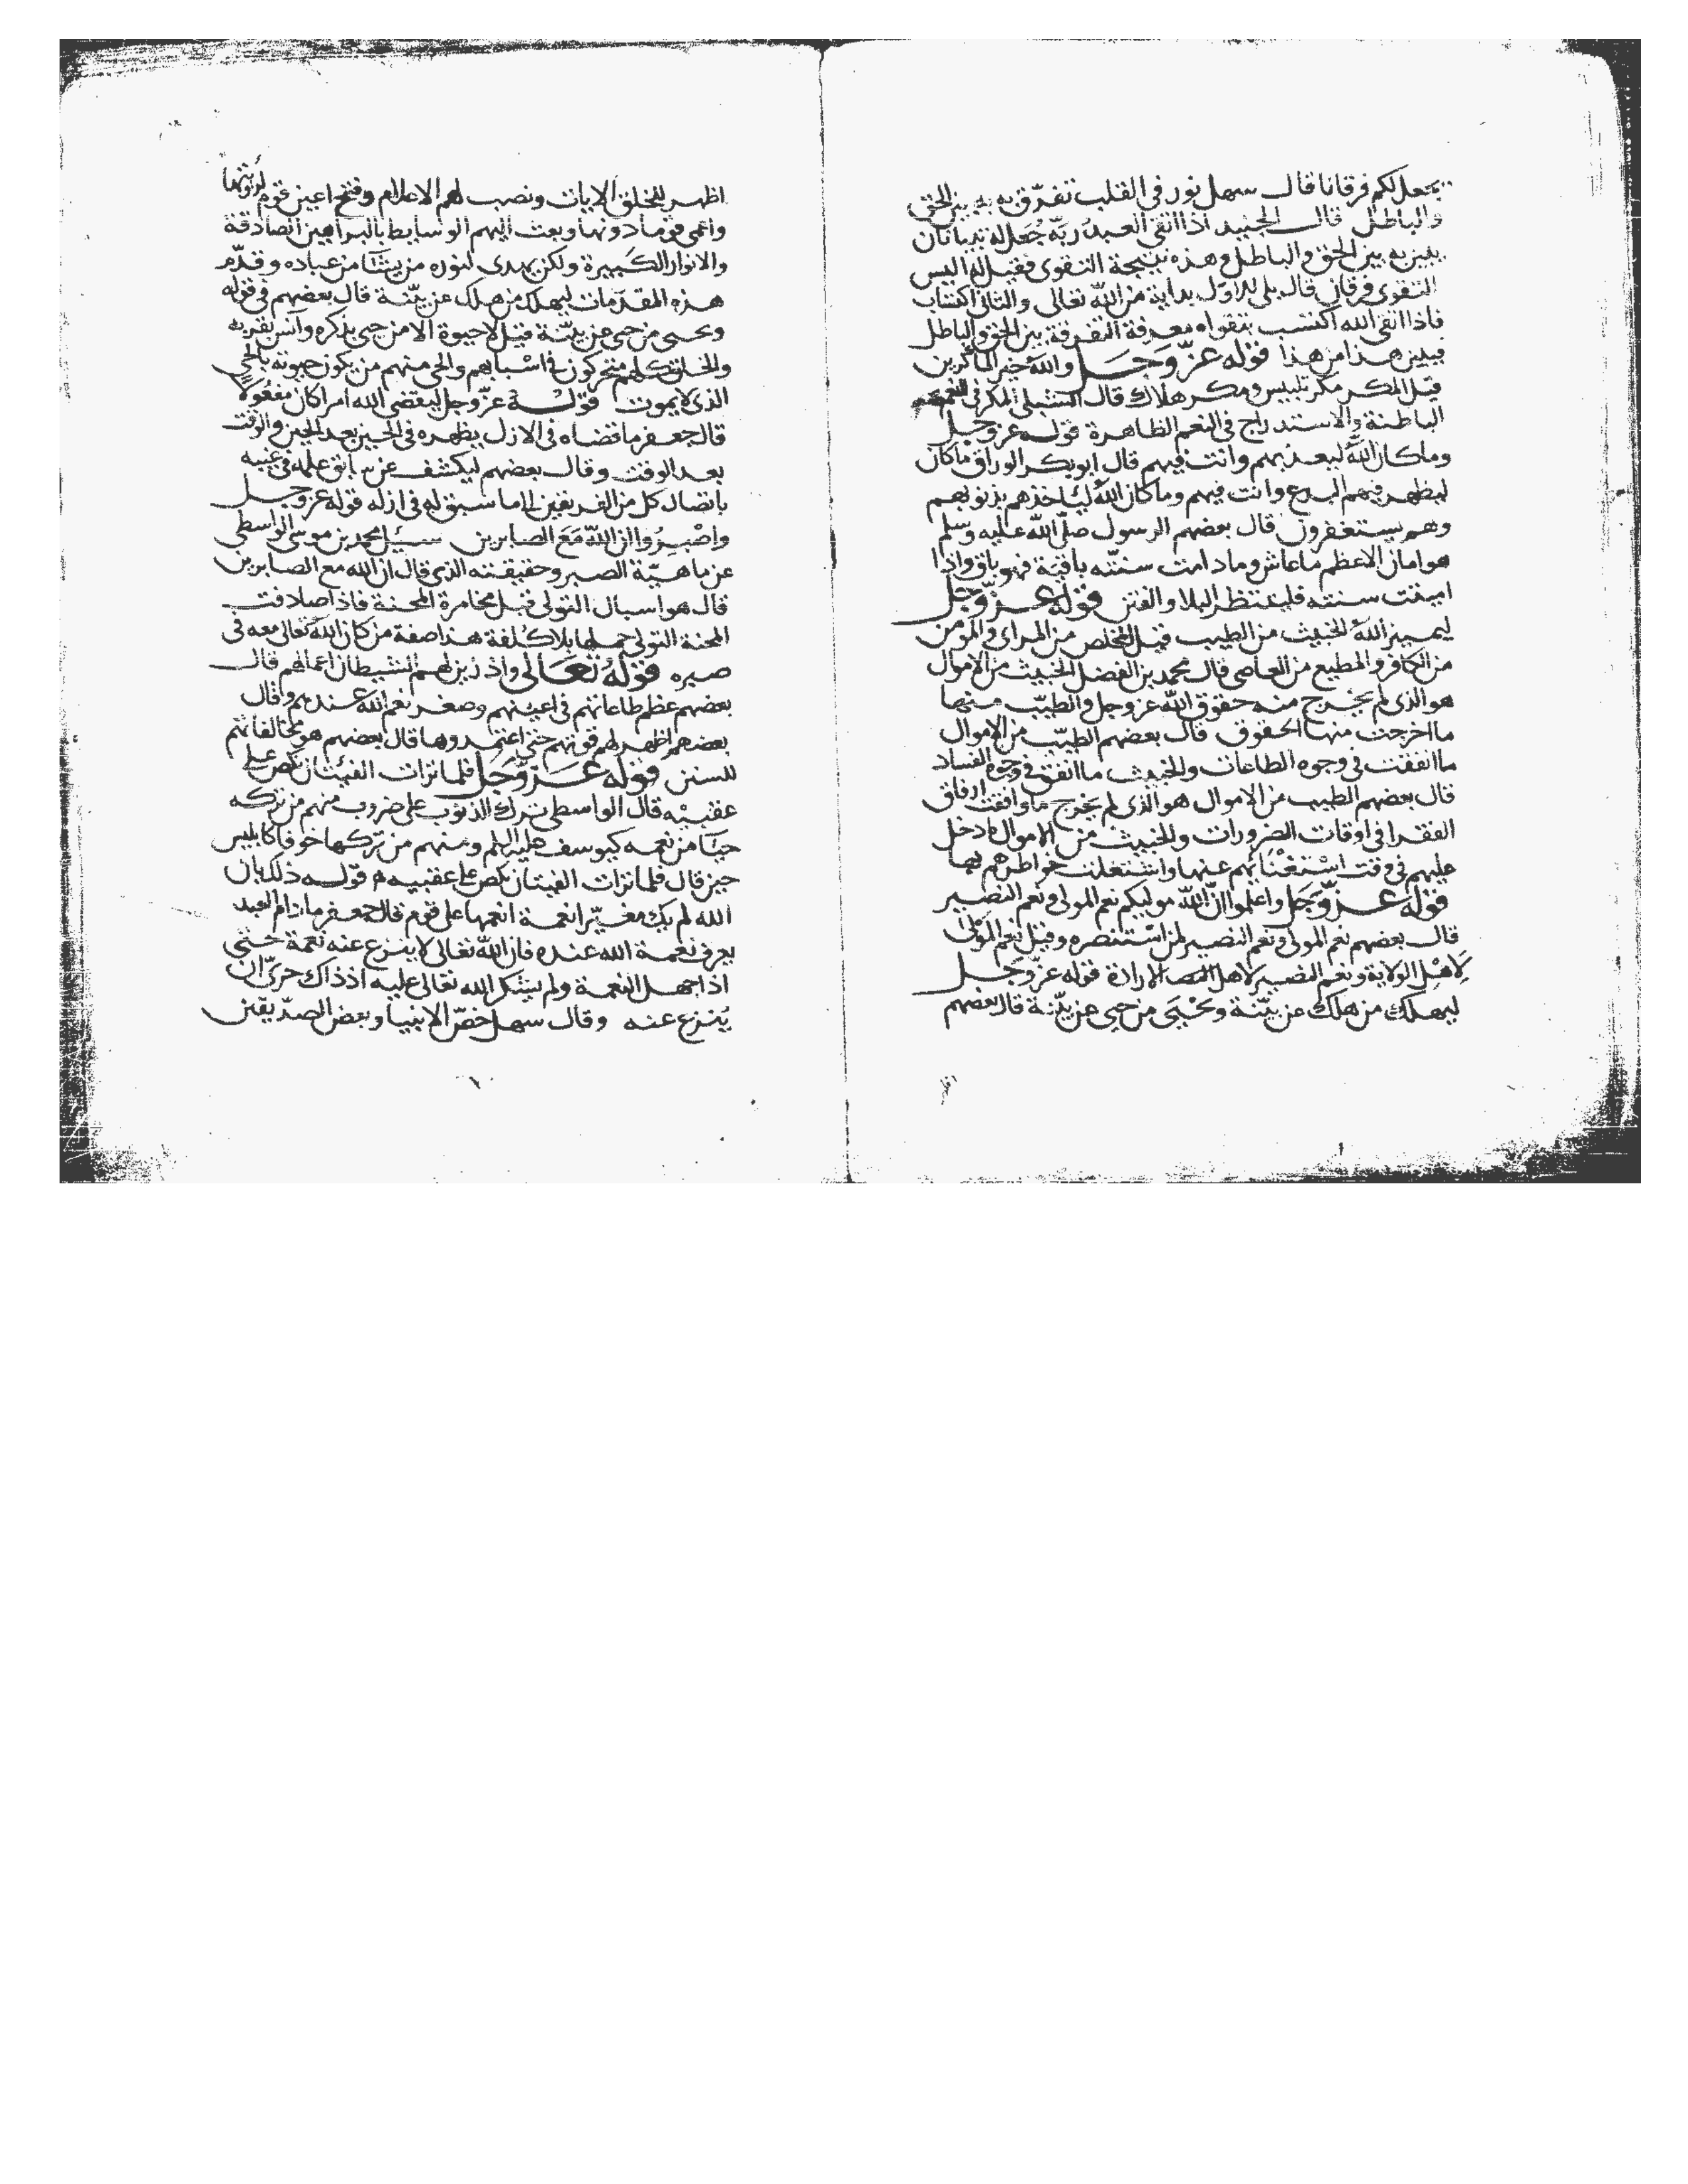 يجعل لكم فرقانا قال سهل نور في القلب تفرّق به بين الحق
والباطل قال الجنيد اذا اتقى العبد ربّه جعل له تبيانا
يبين به بين الحق والباطل وهذه نتيجة التقوى فقيل له اليس
التقوى فرقان قال بلى الاول بداية من الله تعالى والثاني اكتساب
فاذا اتقى الله اكتسب بتقواه معرفة التفرقة بين الحق والباطل
فيبين هذا من هذا قوله عزّ وجل والله خير الماكرين
قيل المكر مكر تلبيس ومكر هلاك قال الشبلي المكر في النعم
الباطنة والاستدراج في النعم الظاهرة قوله عز وجل
وما كان الله ليعذبهم وانت فيهم قال ابو بكر الوراق ما كان
ليظهر فيهم البدع وانت فيهم وما كان الله لياخذهم بذنوبهم
وهم يستغفرون قال بعضهم الرسول صلّى الله عليه وسلم
هو امان الاعظم ما عاش وما دامت سنّته باقية فهو باق واذا
اميتت سنته فلينتظر البلا والفتن قوله عزّ وجل
ليميز الله الخبيث من الطيب قيل المخلص من المراى والمومن
من الكافر والمطيع من العاصي قال محمد بن الفضل الخبيث من الاموال
هو الذي لم يخرج منه حقوق الله عز وجل والطيّب منها
ما اخرجت منها الحقوق قال بعضهم الطيّب من الاموال
ما انفقت في وجوه الطاعات والخبيث ما انفق في وجوه الفساد
قال بعضهم الطيب من الاموال هو الذي لم يخرج ما وافقت ارفاق
الفقرا في اوقات الضرورات والخبيث من الاموال ما دخل
عليهم في وقت استغنائهم عنها واشتغلت خواطرهم بها
قوله عزّ وجل واعلموا انّ الله موليكم نعم المولى ونعم النصير
قال بعضهم نعم المولى ونعم النصير لمن استنصره وقيل نعم المولى
لاهل الولاية ونعم النصير لاهل الارادة قوله عز وجل
ليهلك من هلك عن بيّنة ويحيى من حي عن بيّنة قال بعضهم
اظهر للخلق الايات ونصب لهم الاعلام وفتح اعين قوم لرؤيتها
واعمى قوما دونها وبعث اليهم الوسايط بالبراهين الصادقة
والانوار الكبيرة ولكن يهدى لنوره من يشا من عباده وقدّم
هذه المقدّمات ليهلك من هلك عن بيّنة قال بعضهم في قوله
ويحيى من حي عن بيّنة قيل لا حيوة الا من حيي بذكره وآنس بقربه
والخلق كلهم متحركون في اسبابهم والحي منهم من يكون حيوته بالحي
الذي لا يموت قوله عزّ وجل ليقضي الله امرا كان مفعولا
قال جعفر ما قضاه في الازل يظهره في الحين بعد الحين والوقت
بعد الوقت وقال بعضهم ليكشف عن سابق علمه في غيبه
باتصال كل من الفريقين الى ما سبق له في ازله قوله عز وجل
واصبروا ان الله مع الصابرين سئيل محمد بن موسى الواسطي
عن ماهيّة الصبر وحقيقته الذي قال ان الله مع الصابرين
قال هو اسبال التولى قبل مخامرة المحنة فاذا صادفت
المحنة التولى حملها بلا كلفة هذا صفة من كان الله تعالى معه في
صبره قوله تعالى واذ زين لهم الشيطان اعمالهم قال
بعضهم عظم طاعاتهم في اعينهم وصغر نعم الله عندهم وقال
بعضهم اظهر لهم قوتهم حتى اعتمدوها قال بعضهم هو مخالفاتهم
للسنن قوله عزّ وجل فلما تراءت الفئتان نكص على
عقبيه قال الواسطي ترك الذنوب على ضروب منهم من تركه
حيا من نعمه كيوسف عليه السلم ومنهم من تركها خوفا كابليس
حين قال فلما تراءت الفئتان نكص على عقبيه قوله ذلك بان
الله لم يك مغيّرا نعمة انعمها على قوم قال جعفر ما دام العبد
يعرف نعمة الله عنده فان الله تعالى لا ينزع عنه نعمة حتى
اذا جهل النعمة ولم يشكر الله تعالى عليه اذ ذاك حرىّ ان
ينزع عنه وقال سهل خصّ الانبيا وبعض الصدّيقين